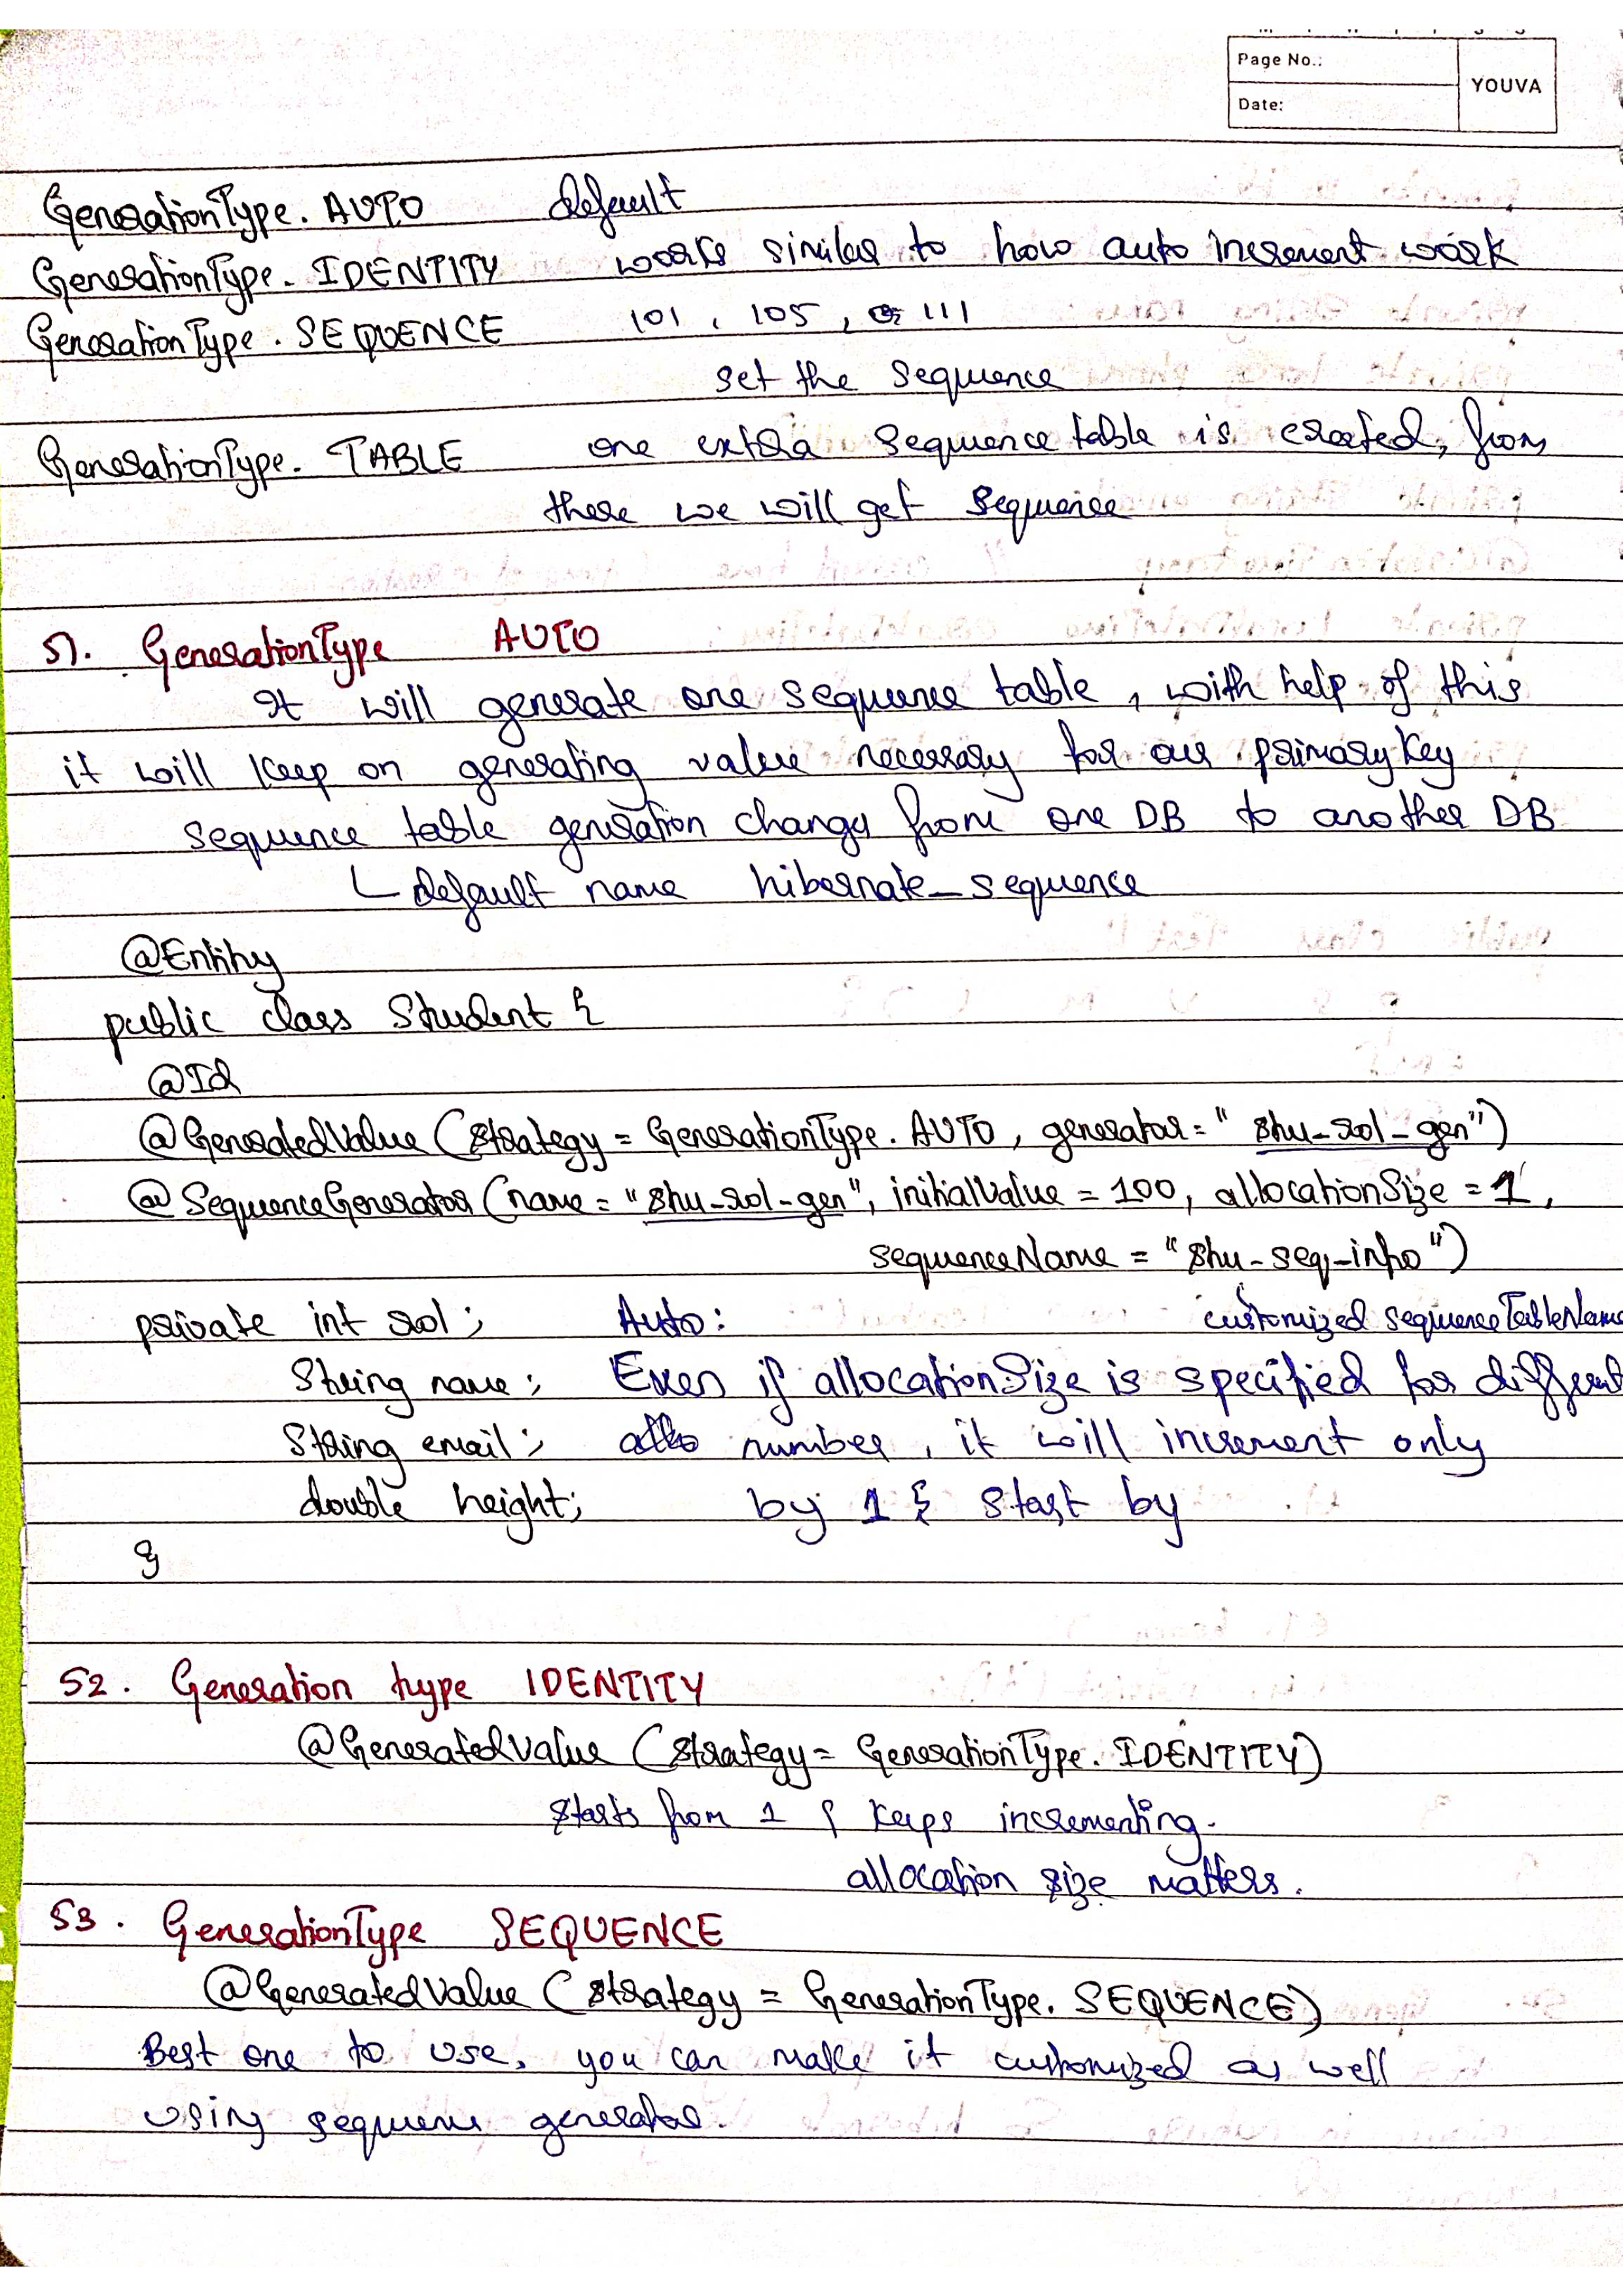 Page No.:
YOUVA
Date:
GenerationType. AUTO default
GenerationType. IDENTITY works similar to how auto increment work
GenerationType. SEQUENCE 101, 105, or 111
set the sequence
GenerationType. TABLE one extra sequence table is created, from
there we will get sequence
51. GenerationType AUTO
It will generate one sequence table, with help of this
it will keep on generating value necessary for our primary key
sequence table generation changes from one DB to another DB
└ default name hibernate_sequence
@Entity
public class Student {
@Id
@GeneratedValue (strategy = GenerationType. AUTO, generator = "stu-rol-gen")
@SequenceGenerator (name = "stu-rol-gen", initialValue = 100, allocationSize = 1,
sequenceName = "stu-seq-info")
private int rol; Auto: customized sequenceTableName
String name; Even if allocationSize is specified for different
String email; number, it will increment only
double height; by 1 & start by
}
52. Generation type IDENTITY
@GeneratedValue (strategy = GenerationType. IDENTITY)
starts from 1 & keeps incrementing.
allocation size matters.
53. GenerationType SEQUENCE
@GeneratedValue (strategy = GenerationType. SEQUENCE)
Best one to use, you can make it customized as well
using sequence generator.